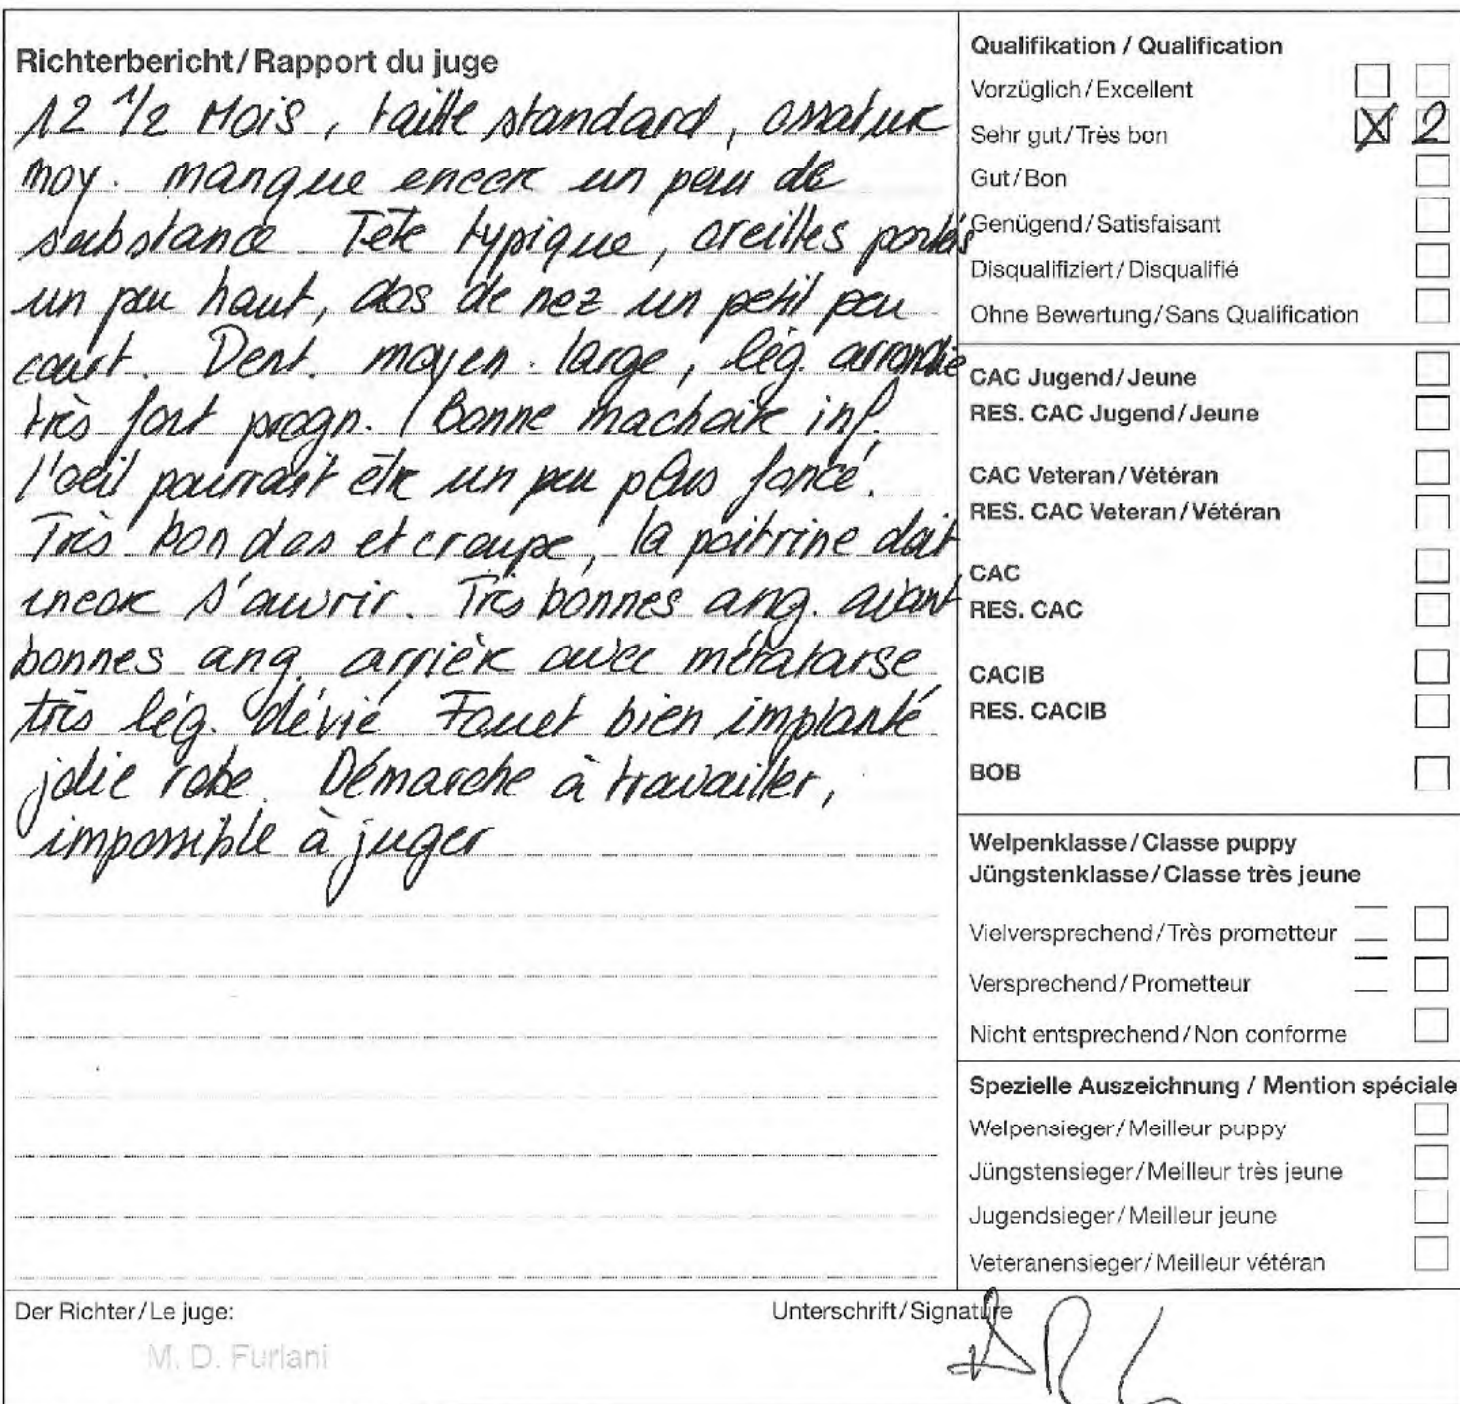 Richterbericht/Rapport du juge
12 1/2 Mois, taille standard, ossature
moy. manque encore un peu de
substance Tête typique, oreilles portés
un peu haut, dos de nez un petit peu
court. Dent. moyen. large, lég. arrondie
très fort progn. Bonne machoire inf.
l'oeil pourrait être un peu plus foncé.
Très bon dos et croupe, la poitrine doit
encore s'ouvrir. Très bonnes ang. avant
bonnes ang. arrière avec métatarse
très lég. dévié Fouet bien implanté
jolie robe. Démarche à travailler,
impossible à juger
Qualifikation / Qualification
Vorzüglich/Excellent
Sehr gut/Très bon X 2
Gut/Bon
Genügend/Satisfaisant
Disqualifiziert/Disqualifié
Ohne Bewertung/Sans Qualification
CAC Jugend/Jeune
RES. CAC Jugend/Jeune
CAC Veteran/Vétéran
RES. CAC Veteran/Vétéran
CAC
RES. CAC
CACIB
RES. CACIB
BOB
Welpenklasse/Classe puppy
Jüngstenklasse/Classe très jeune
Vielversprechend/Très prometteur
Versprechend/Prometteur
Nicht entsprechend/Non conforme
Spezielle Auszeichnung / Mention spéciale
Welpensieger/Meilleur puppy
Jüngstensieger/Meilleur très jeune
Jugendsieger/Meilleur jeune
Veteranensieger/Meilleur vétéran
Der Richter/Le juge:
M. D. Furlani
Unterschrift/Signature